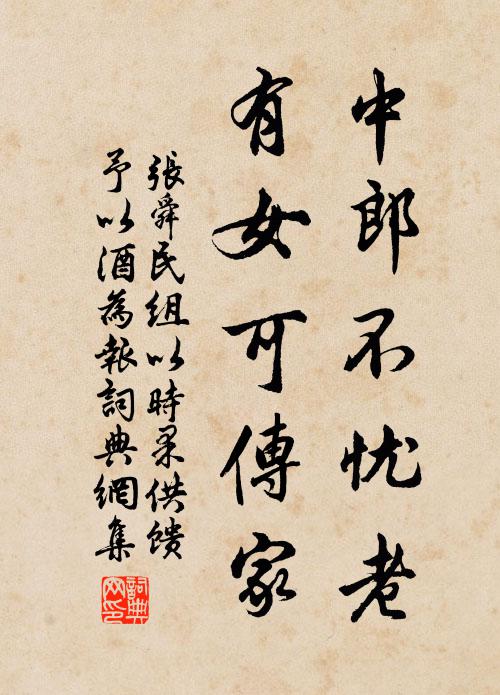 中郎不忧老
有女可傳家
張舜民組以時果供馈
予以酒為報詞典網集
詞典網印